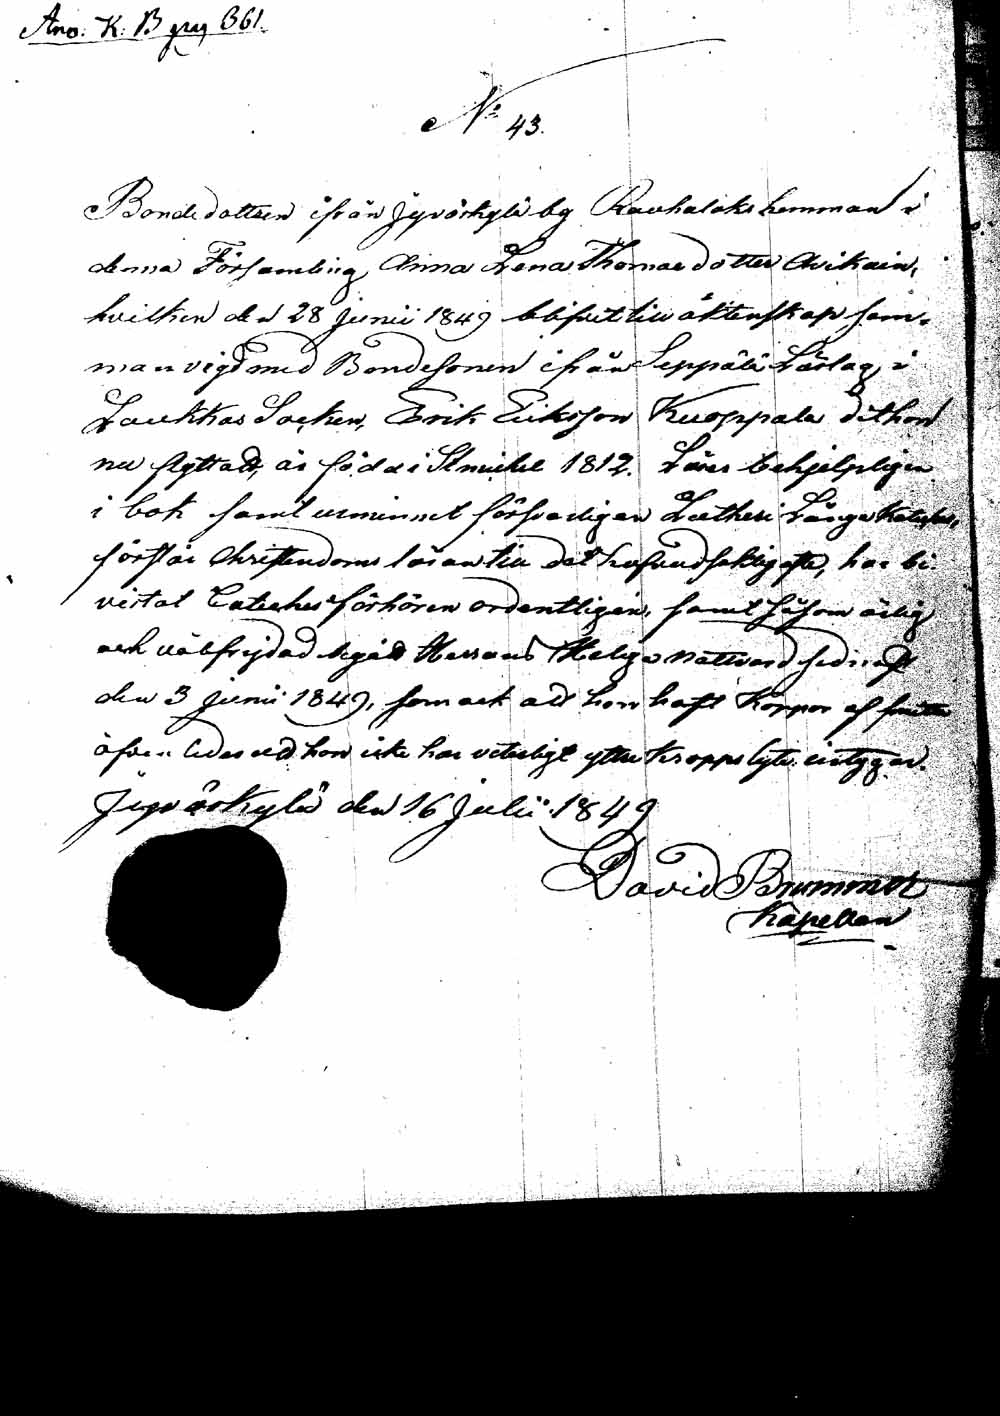 Ano: K: B pag 361.
No 43.
Bondedottren ifrån Jyväskylä by Rauhalaks hemman i
denna Församling, Anna Lena Thomasdotter
hvilken den 28 Junii 1849 blifvit till äktenskap sam-
manvigd med Bondesonen ifrån Seppälä Lärlag, i
Laukkas Socken, Erik Eriksson Kuoppala dit hon
nu flyttad, är född i St michel 1812. Läser behjelpligen
i bok samt utminnet försvarligen Lutheri Långa Kateches,
förstår Christendoms läran till det hufvudsakligaste, har bi-
vistat Cateches förhören ordentligen, samt såsom ärlig
och välfrejdad begått Herrans Helga Nattvard sednast
den 3 Junii 1849, som ock att hon haft Koppor
äfvenledes ad hon icke har veterligt yttre Kroppslyte, intygar.
Jyväskylä den 16 Julii 1849
David Brummer
Kapellan